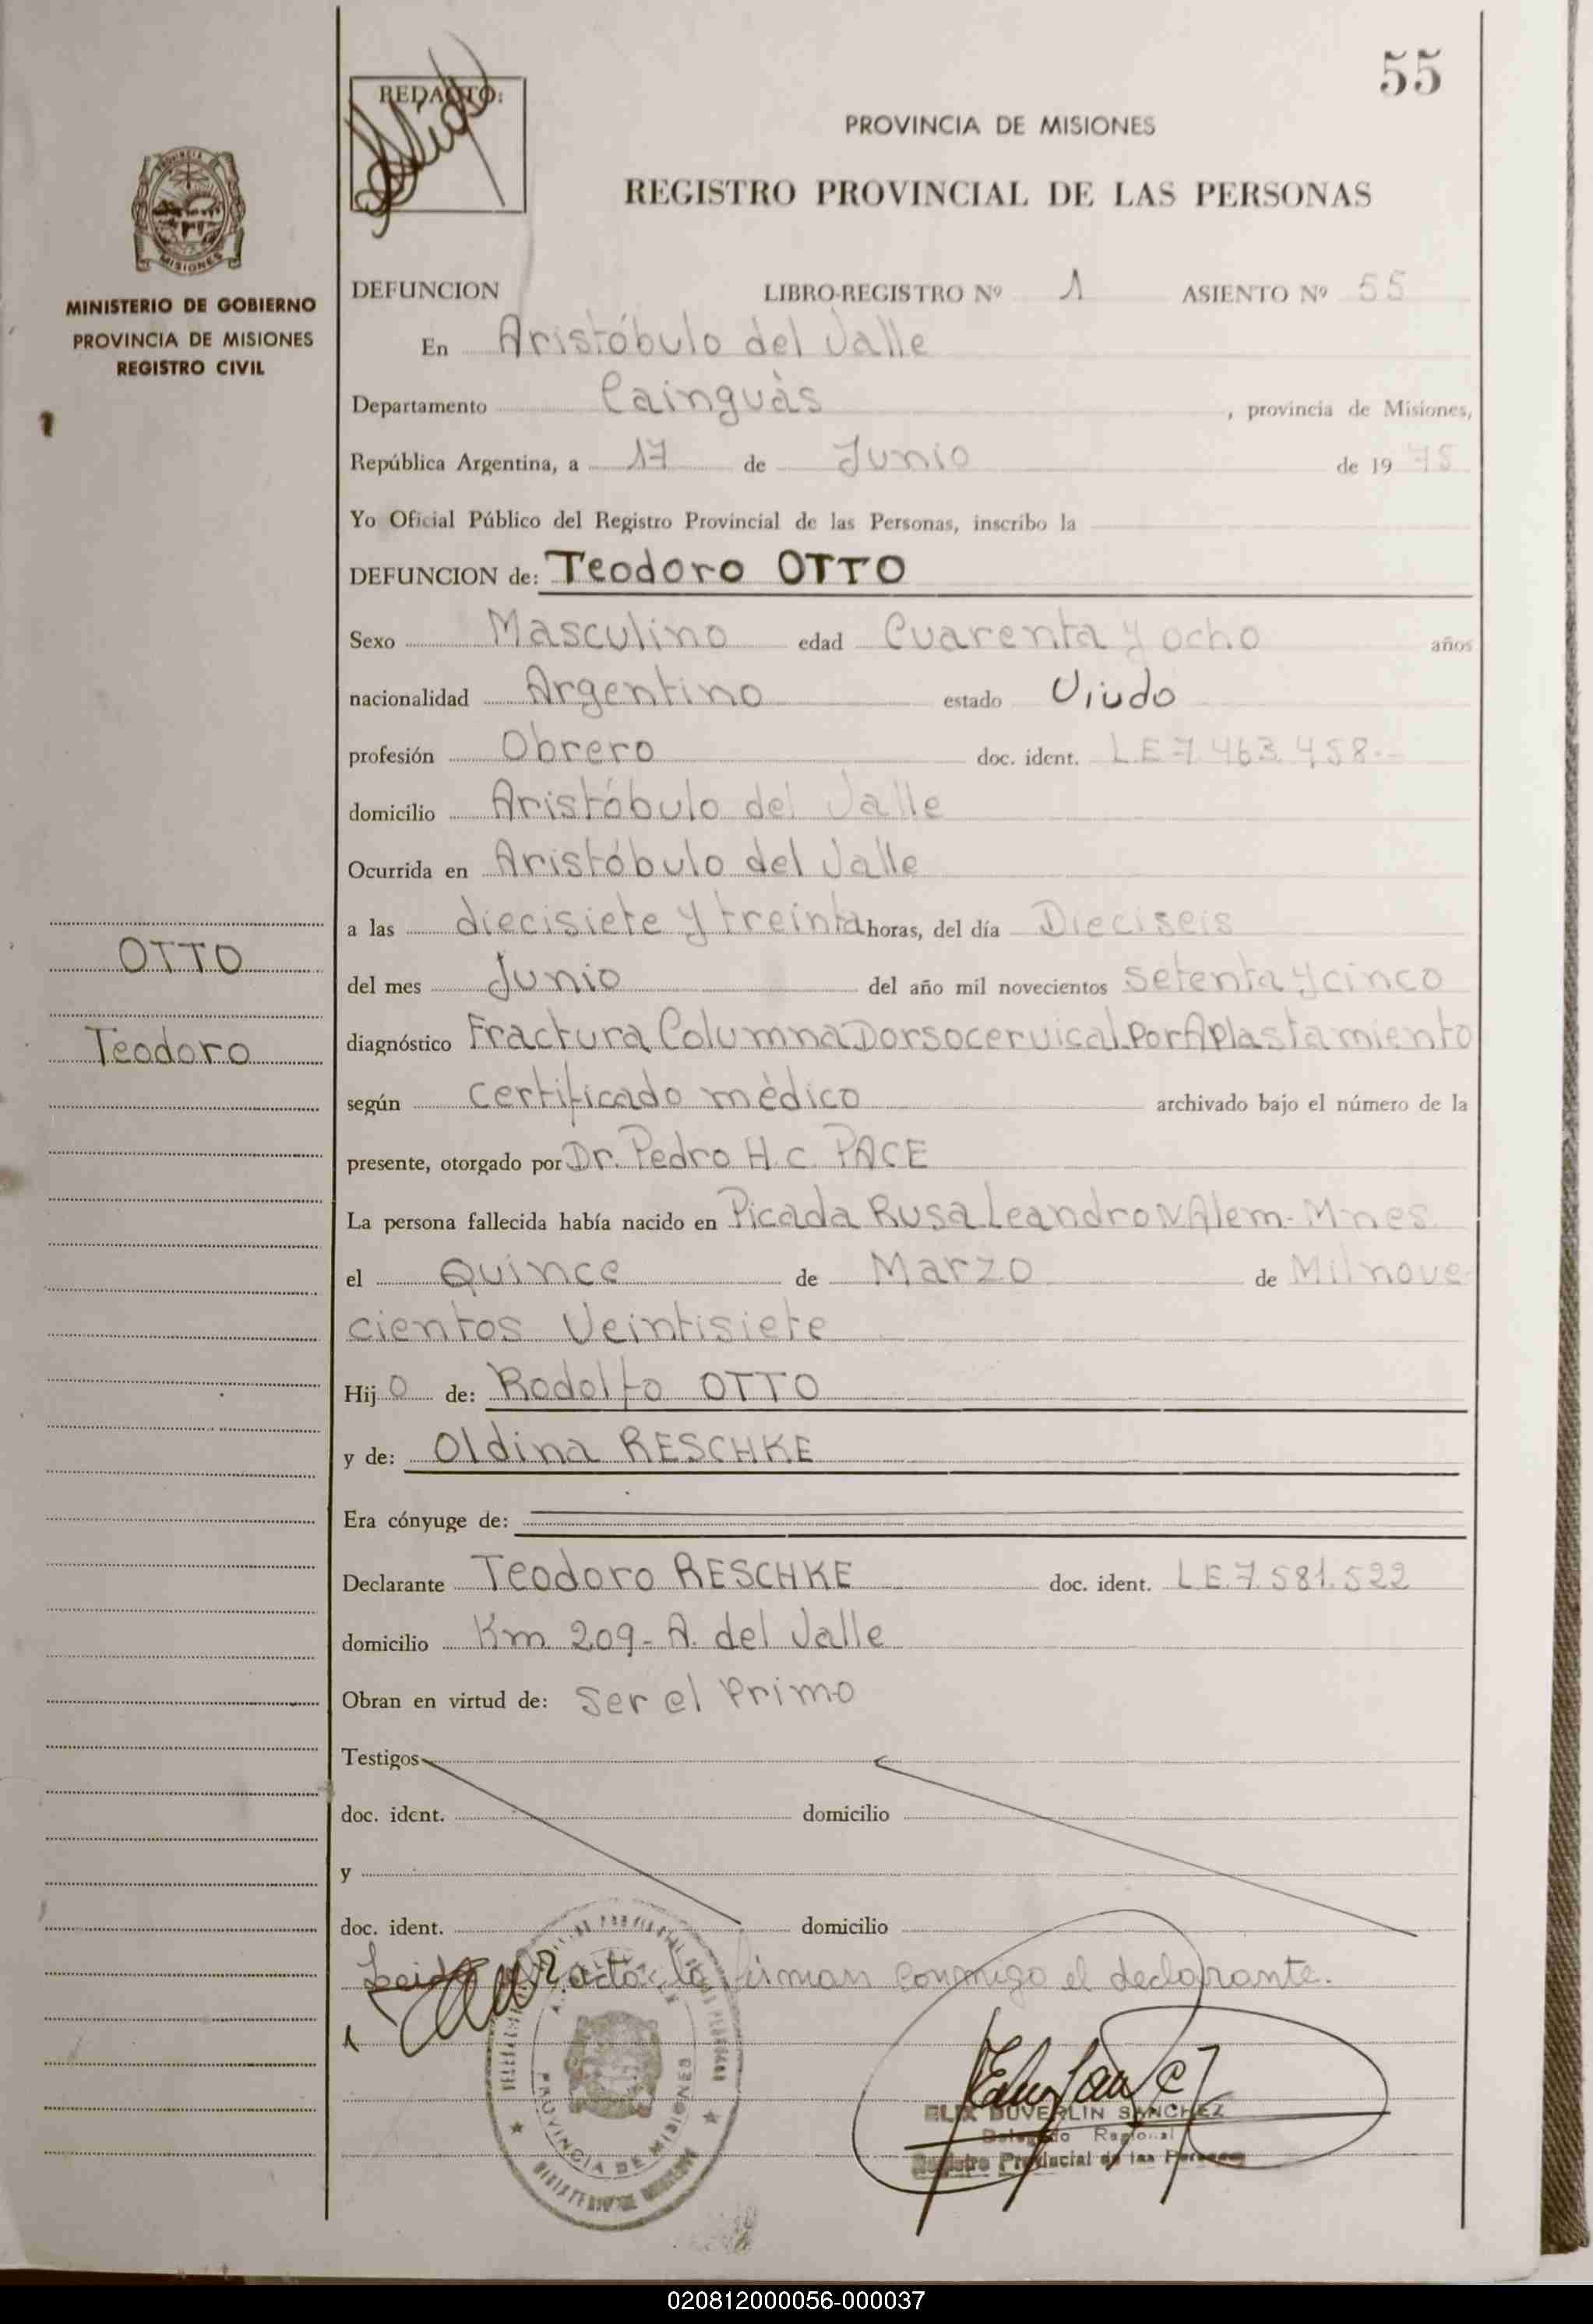 55
REDACTO:
PROVINCIA DE MISIONES
REGISTRO PROVINCIAL DE LAS PERSONAS
MISIONES
MINISTERIO DE GOBIERNO
PROVINCIA DE MISIONES
REGISTRO CIVIL
DEFUNCION LIBRO-REGISTRO Nº 1 ASIENTO Nº 55
En Aristóbulo del Valle
Departamento Cainguàs , provincia de Misiones,
República Argentina, a 17 de Junio de 19 75
Yo Oficial Público del Registro Provincial de las Personas, inscribo la
DEFUNCION de: Teodoro OTTO
Sexo Masculino edad Cuarenta y ocho años
nacionalidad Argentino estado Viudo
profesión Obrero doc. ident. L.E 7.463.458.-
domicilio Aristóbulo del Valle
Ocurrida en Aristóbulo del Valle
a las diecisiete y treinta horas, del día Dieciseis
del mes Junio del año mil novecientos Setenta y cinco
OTTO
Teodoro
diagnóstico Fractura Columna Dorsocervical Por Aplastamiento
según certificado mèdico archivado bajo el número de la
presente, otorgado por Dr. Pedro H.C. PACE
La persona fallecida había nacido en Picada Rusa Leandro N Alem - Mnes
el Quince de Marzo de Mil nove-
cientos Veintisiete
Hij o de: Rodolfo OTTO
y de: Oldina RESCHKE
Era cónyuge de:
Declarante Teodoro RESCHKE doc. ident. L.E.7.581.522
domicilio Km 209 - A. del Valle
Obran en virtud de: Ser el Primo
Testigos
doc. ident. domicilio
y
doc. ident. domicilio
Leida acta la firman conmigo el declarante.
PROVINCIA DE MISIONES
ELIX DUVERLIN SANCHEZ
Delegado Regional
Registro Provincial de las Personas
020812000056-000037